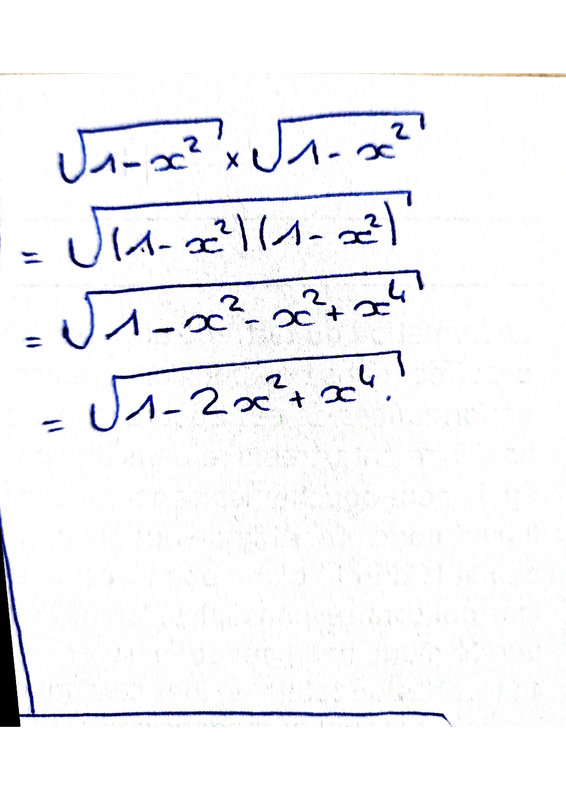 √(1-x²) × √(1-x²)
= √((1-x²)(1-x²))
= √(1-x²-x²+x⁴)
= √(1-2x²+x⁴).